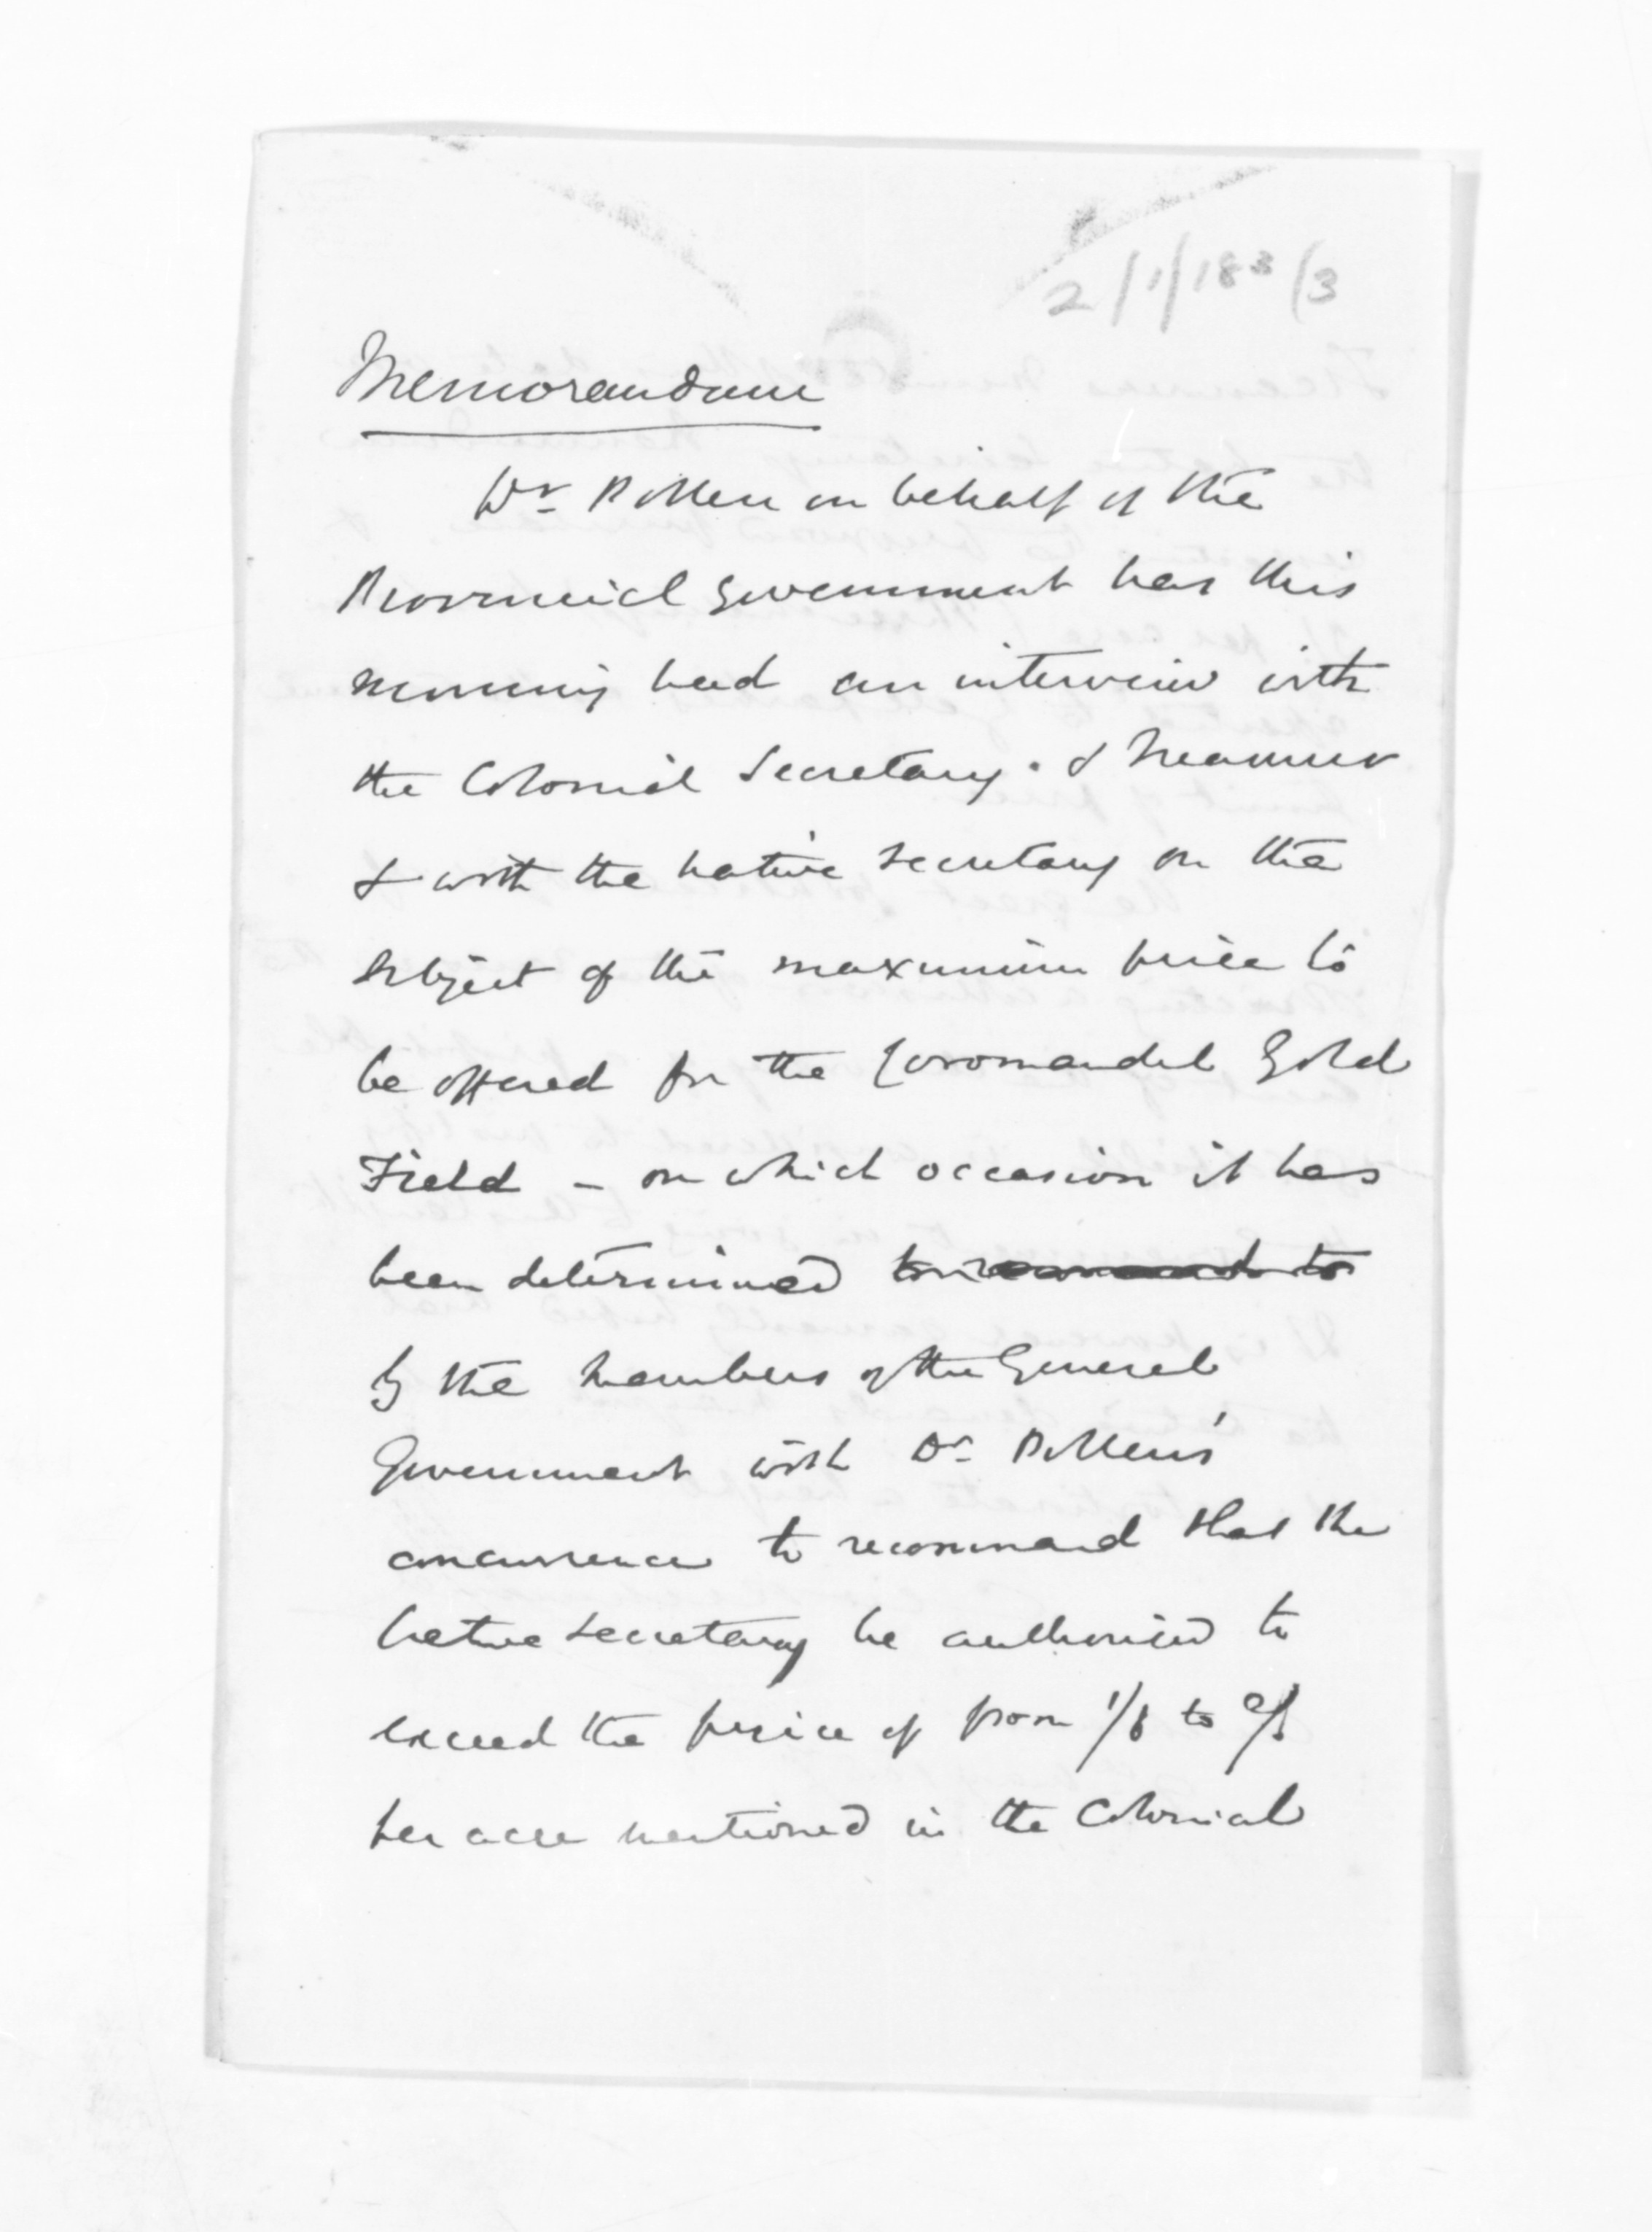 2/1/183/3
Memorandum
Dr Pollen on behalf of the
Provincial Government has this
morning had an interview with
the Colonial Secretary. & Treasurer
& with the native secretary on the
subject of the maximum price to
be offered for the Coromandel Gold
Field - on which occasion it has
been determined to recommend to
by the members of the General
Government with Dr Pollen's
concurrence to recommend that the
native secretary be authorised to
exceed the price of from 1/6 to 2/
per acre mentioned in the Colonial